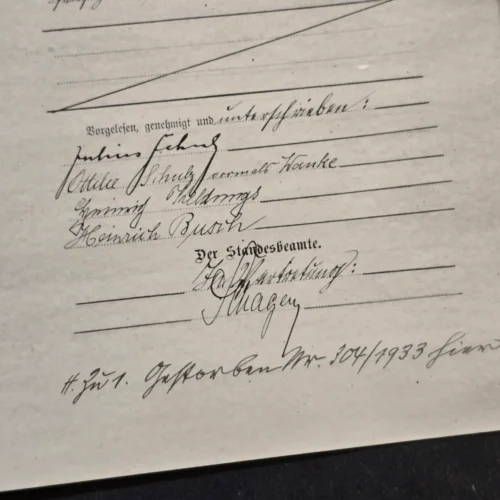 Vorgelesen, genehmigt und unterschrieben:
Julius Schulz
Ottilie Schulz vormals Wanke
Heinrich
Heinrich Busch
Der Standesbeamte.
In Vertretung:
H. zu 1. Gestorben Nr. 304/1933 hier